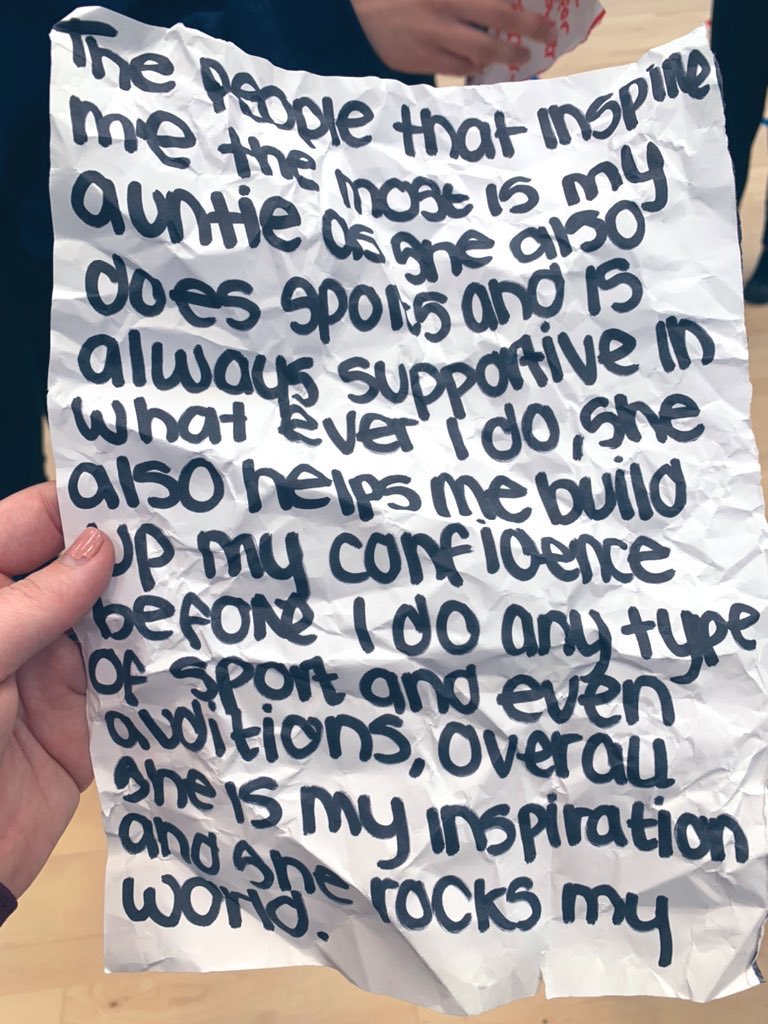 The people that inspire
me the most is my
auntie as she also
does sports and is
always supportive in
what ever I do, she
also helps me build
up my confidence
before I do any type
of sport and even
auditions, overall
she is my inspiration
and she rocks my
world.